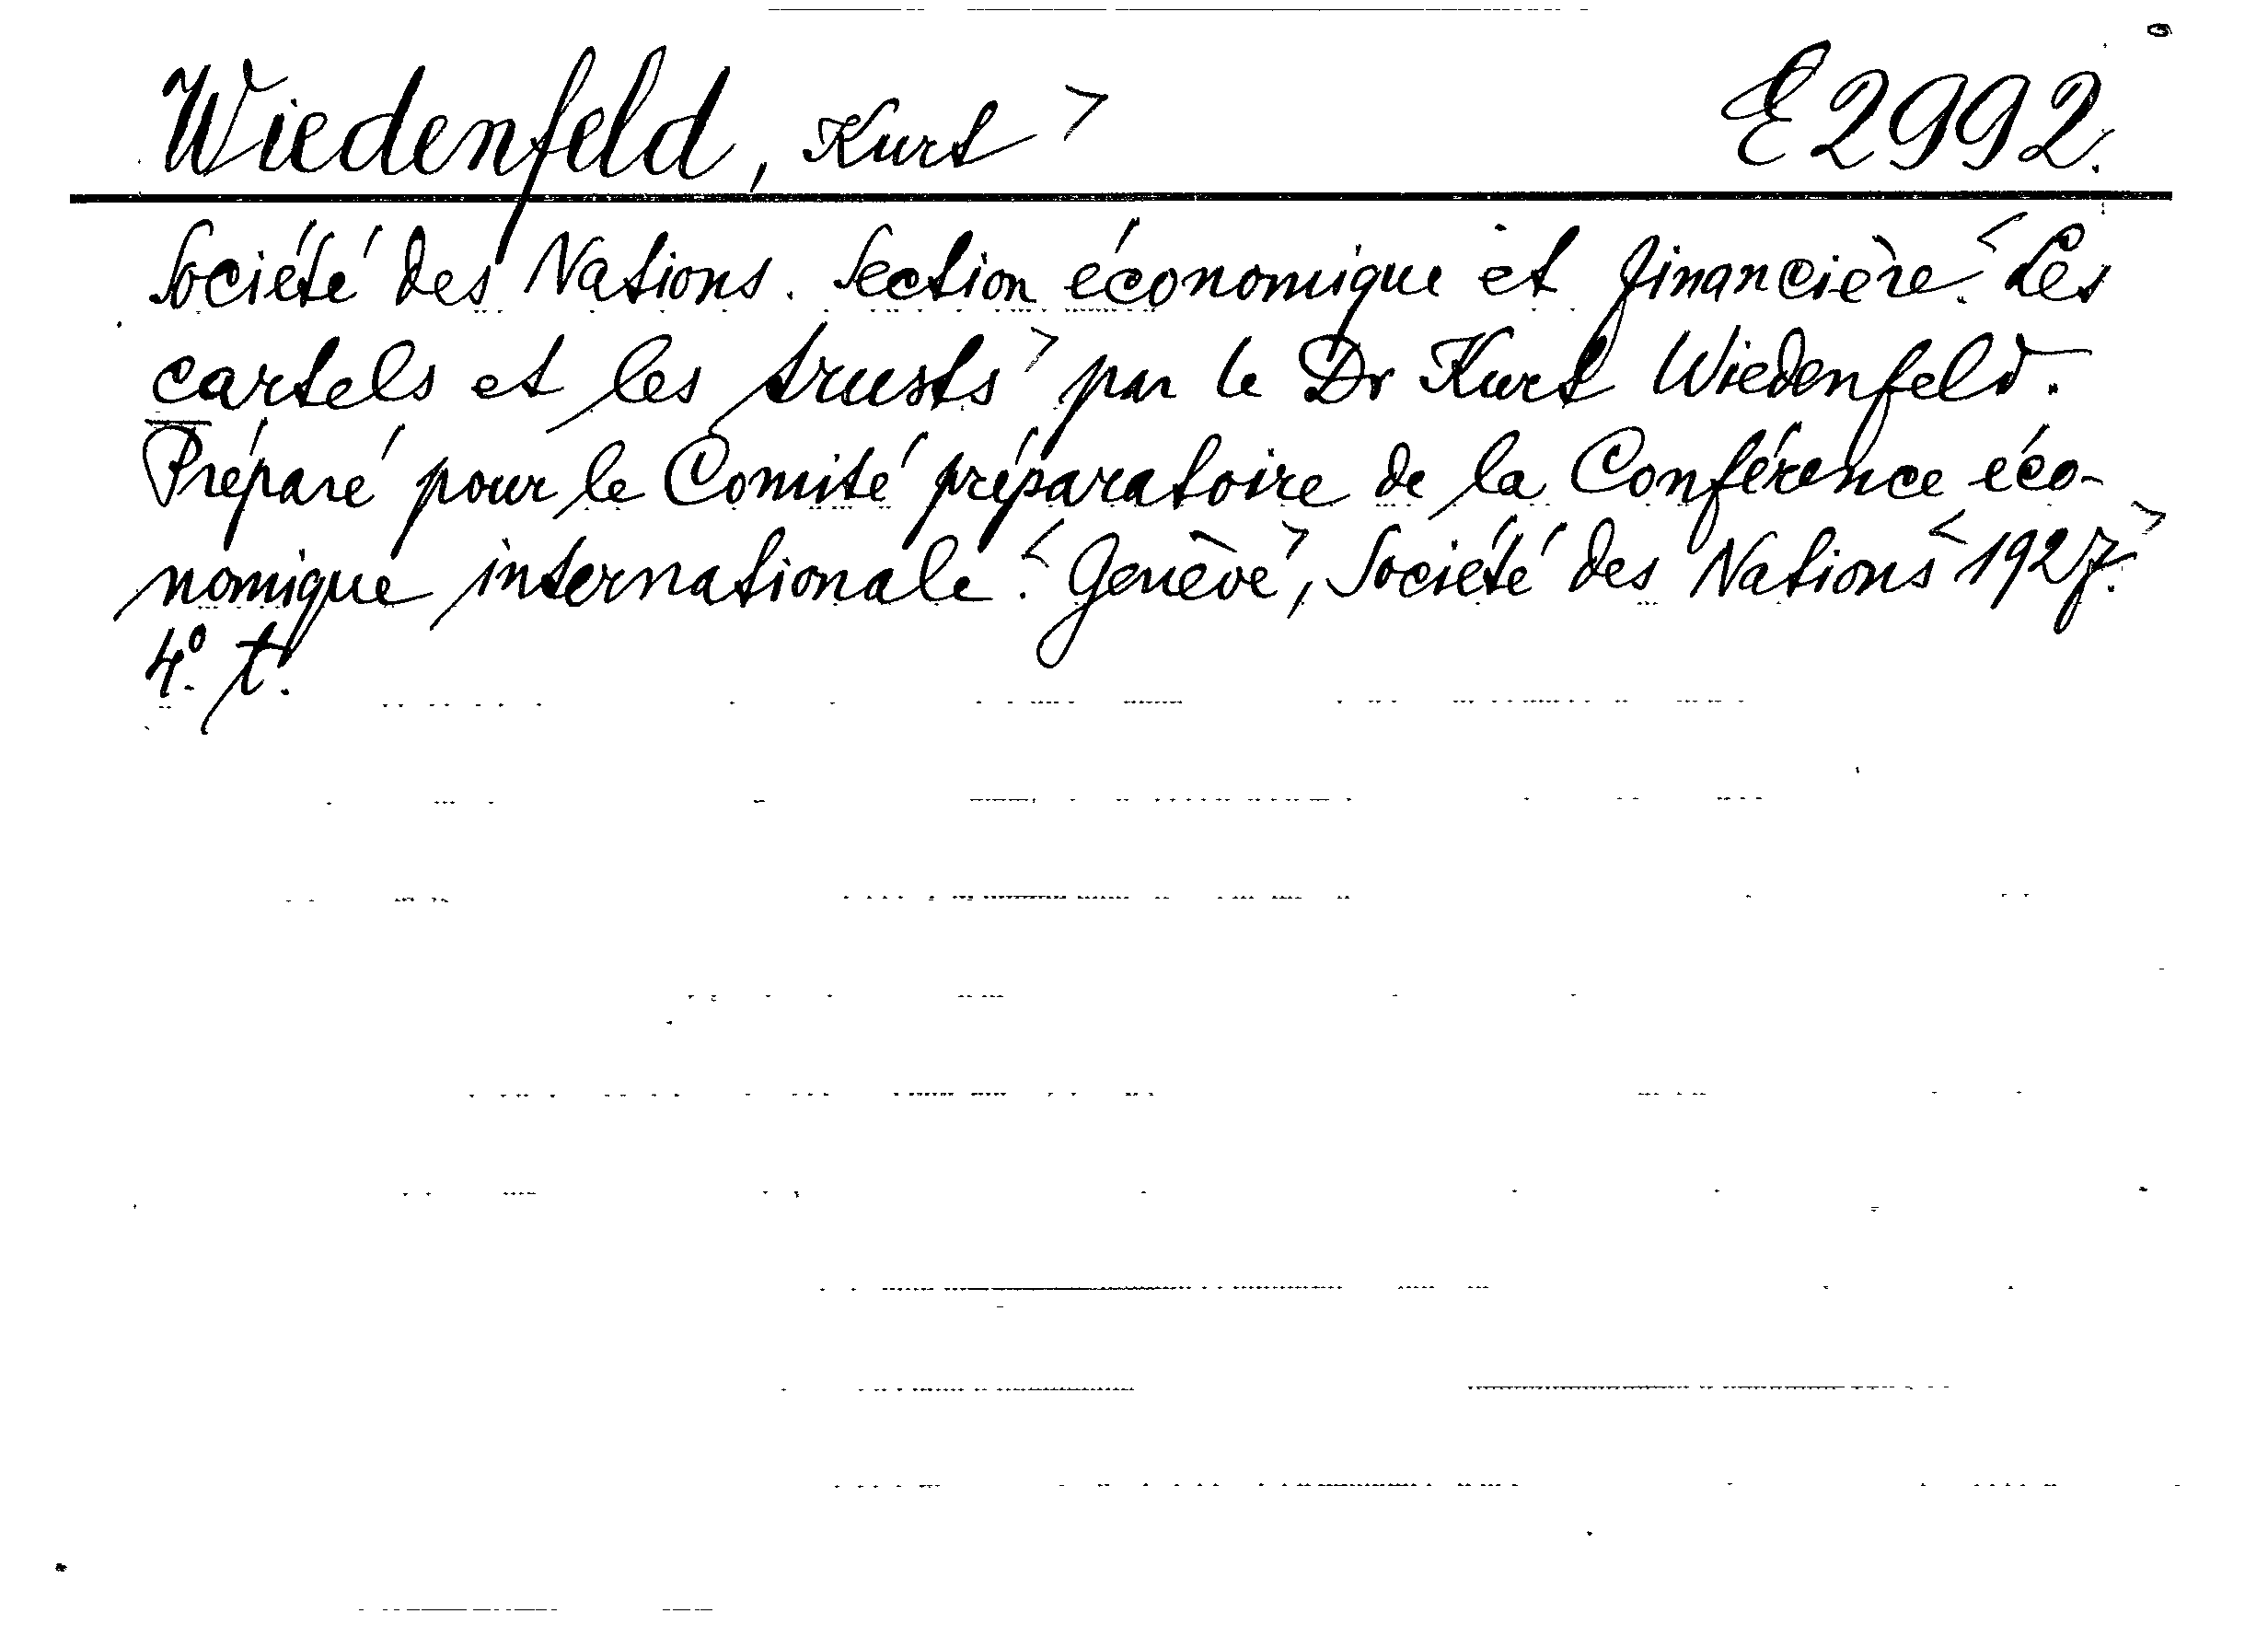 Wiedenfeld, Kurt > E 2992.
Société des Nations. Section économique et financière. < Les
cartels et les trusts > par le Dr Kurt Wiedenfeld.
Préparé pour le Comité préparatoire de la Conférence éco-
nomique internationale. < Genève >, Société des Nations < 1927. >
4.º t.